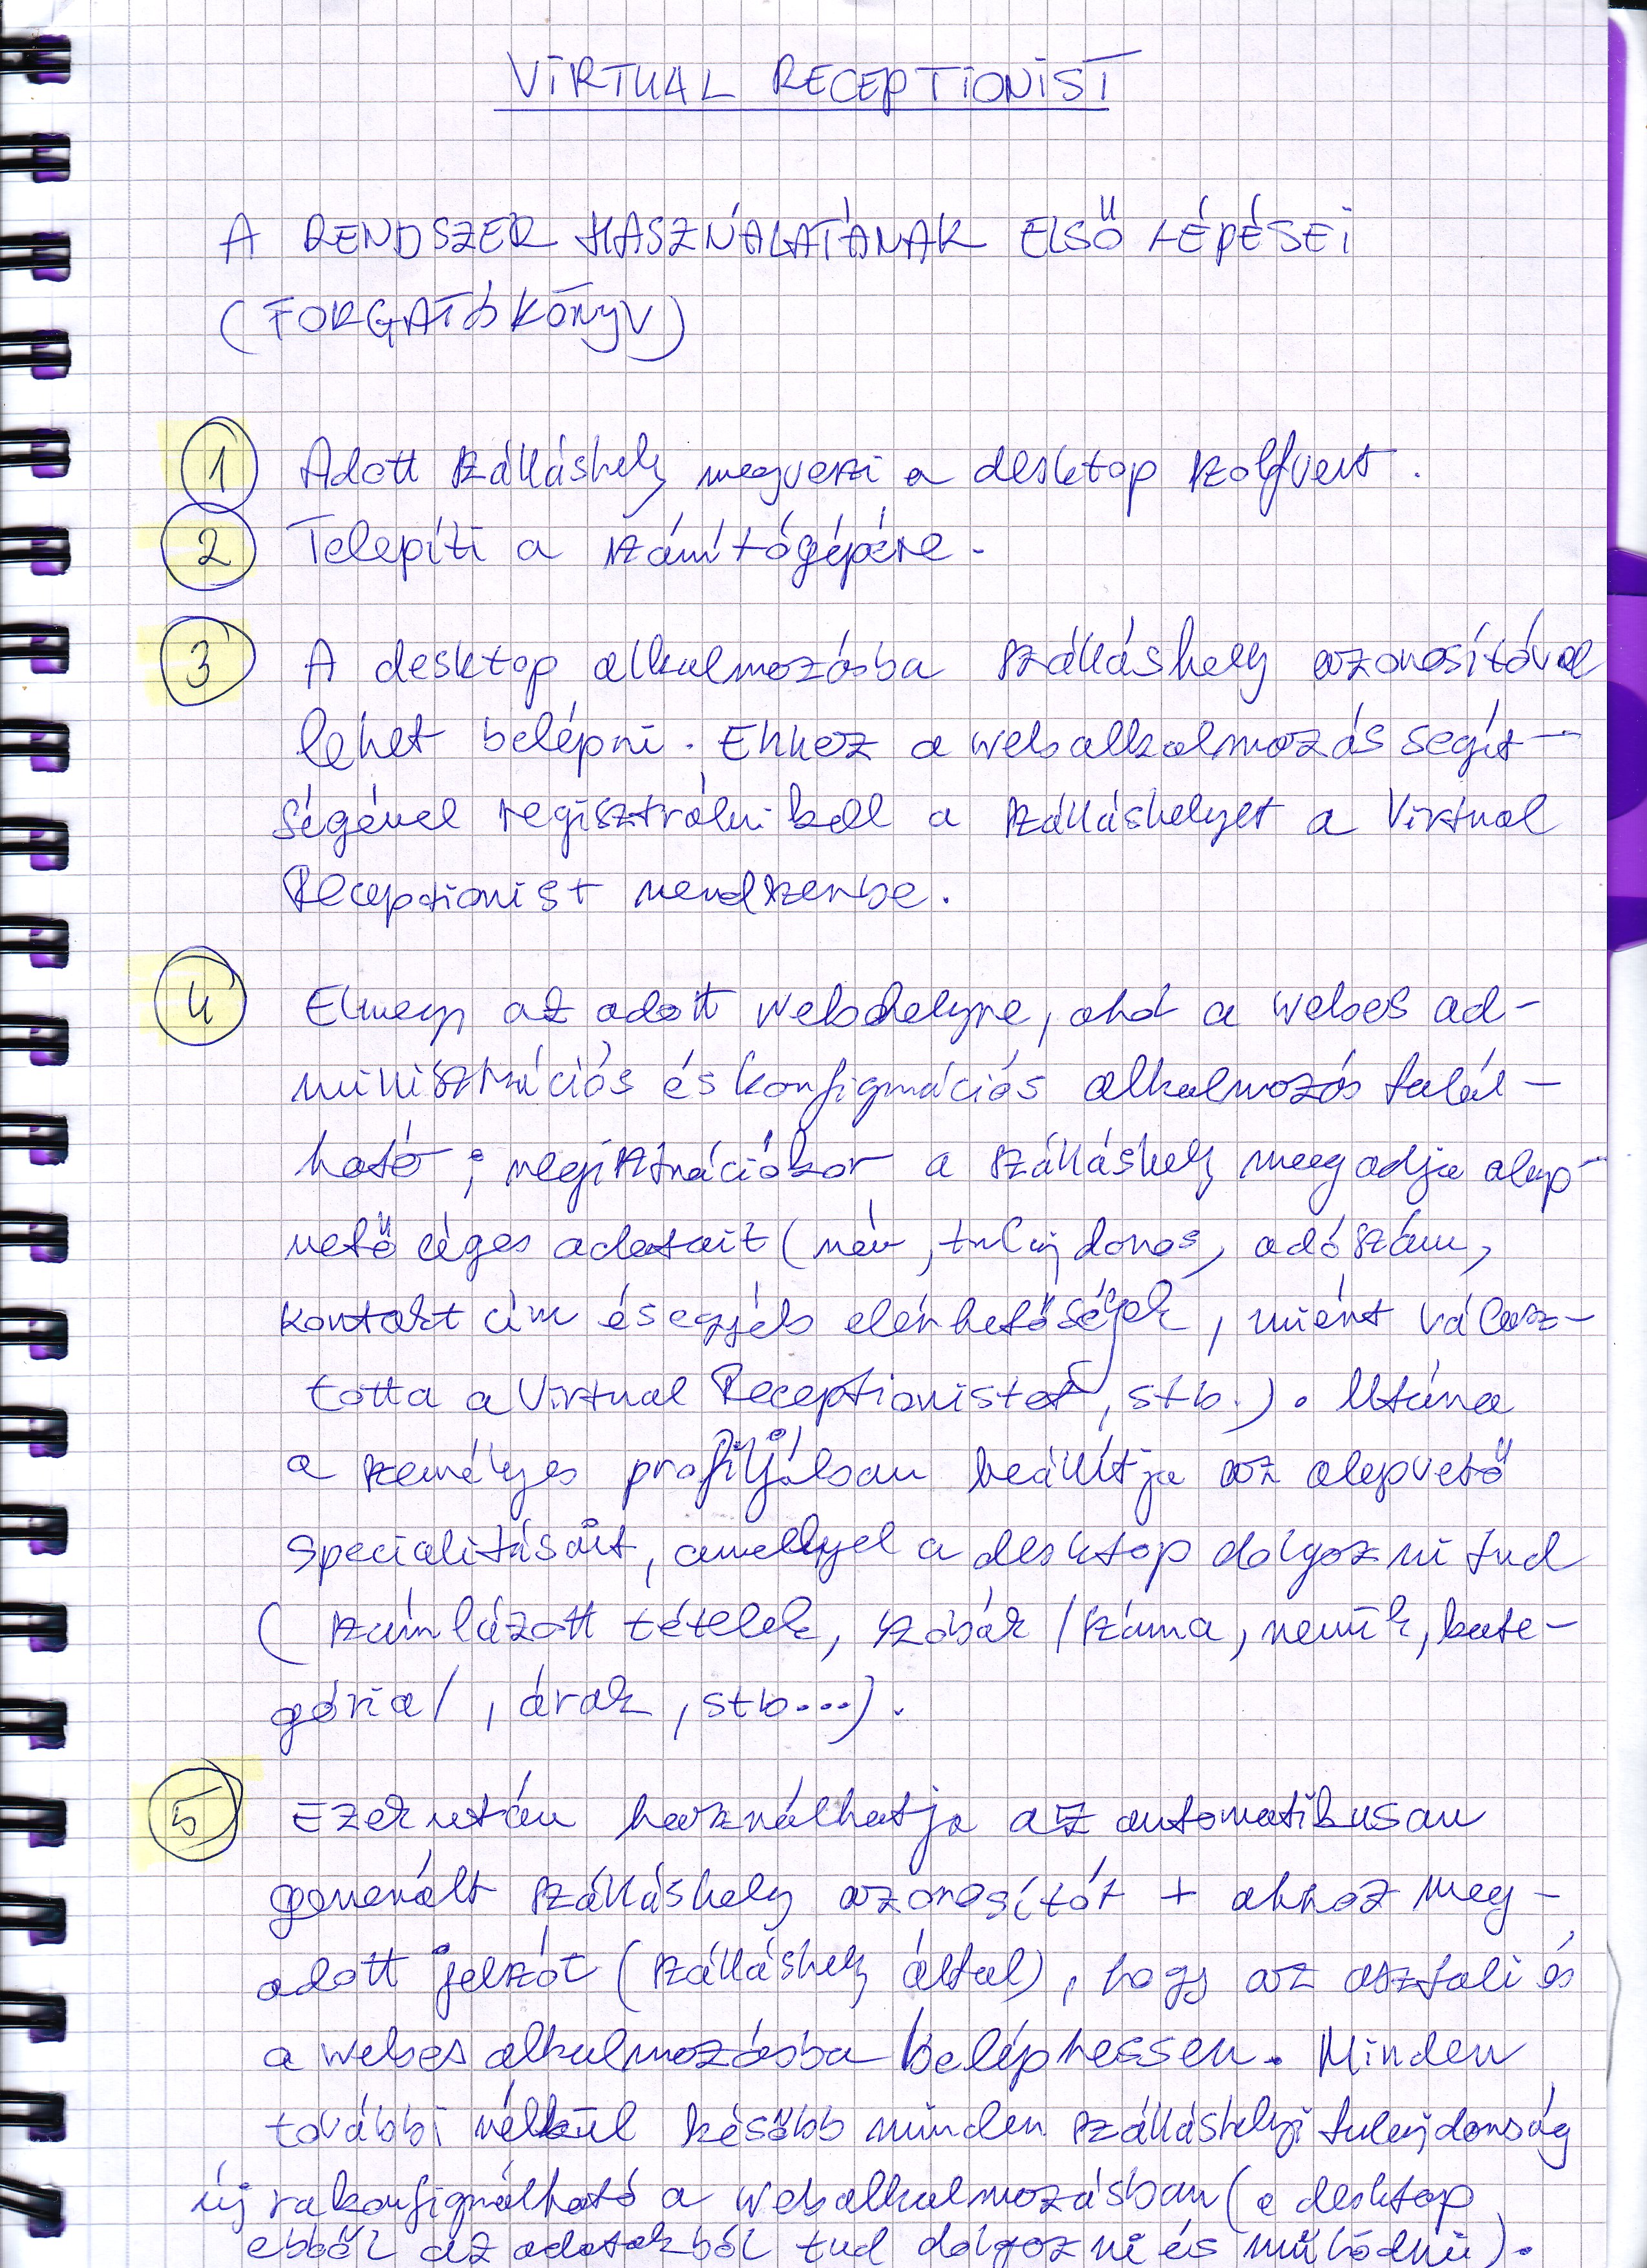 VIRTUAL RECEPTIONIST
A RENDSZER HASZNÁLATÁNAK ELSŐ LÉPÉSEI
(FORGATÓKÖNYV)
1 Adott szálláshely megveszi a desktop szoftvert.
2 Telepíti a számítógépére.
3 A desktop alkalmazásba szálláshely azonosítóval
lehet belépni. Ehhez a webalkalmazás segít-
ségével regisztrálni kell a szálláshelyet a Virtual
Receptionist rendszerbe.
4 Elmegy az adott webhelyre, ahol a webes ad-
minisztrációs és konfigurációs alkalmazás talál-
ható; regisztrációkor a szálláshely megadja alap-
vető céges adatait (név, tulajdonos, adószám,
kontakt cím és egyéb elérhetőségek, miért válasz-
totta a Virtual Receptionistet, stb.). Utána
a személyes profiljában beállítja az alapvető
specialitásait, amellyel a desktop dolgozni tud
(számlázott tételek, szobák /száma, nevük, kate-
gória/, árak, stb...).
5 Ezek után használhatja az automatikusan
generált szálláshely azonosítót + ahhoz meg-
adott jelszót (szálláshely által), hogy az asztali és
a webes alkalmazásba beléphessen. Minden
további nélkül később minden szálláshelyi tulajdonság
újrakonfigurálható a webalkalmazásban (a desktop
ebből az adatokból tud dolgozni és működni).